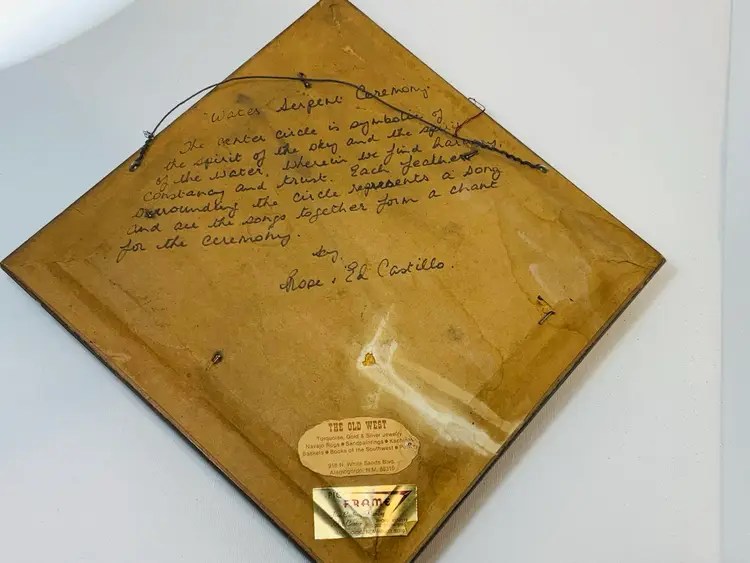 "Water Serpent Ceremony"
The center circle is symbolic of
the spirit of the sky and the spirit
of the water, wherein we find harmony,
constancy and trust. Each feather
surrounding the circle represents a song
and all the songs together form a chant
for the ceremony.
by
Rose & Ed Castillo.
THE OLD WEST
Turquoise, Gold & Silver Jewelry
Navajo Rugs • Sandpaintings • Kachinas
Baskets • Books of the Southwest •
White Sands Blvd.
Alamogordo, N.M. 88310
FRAME